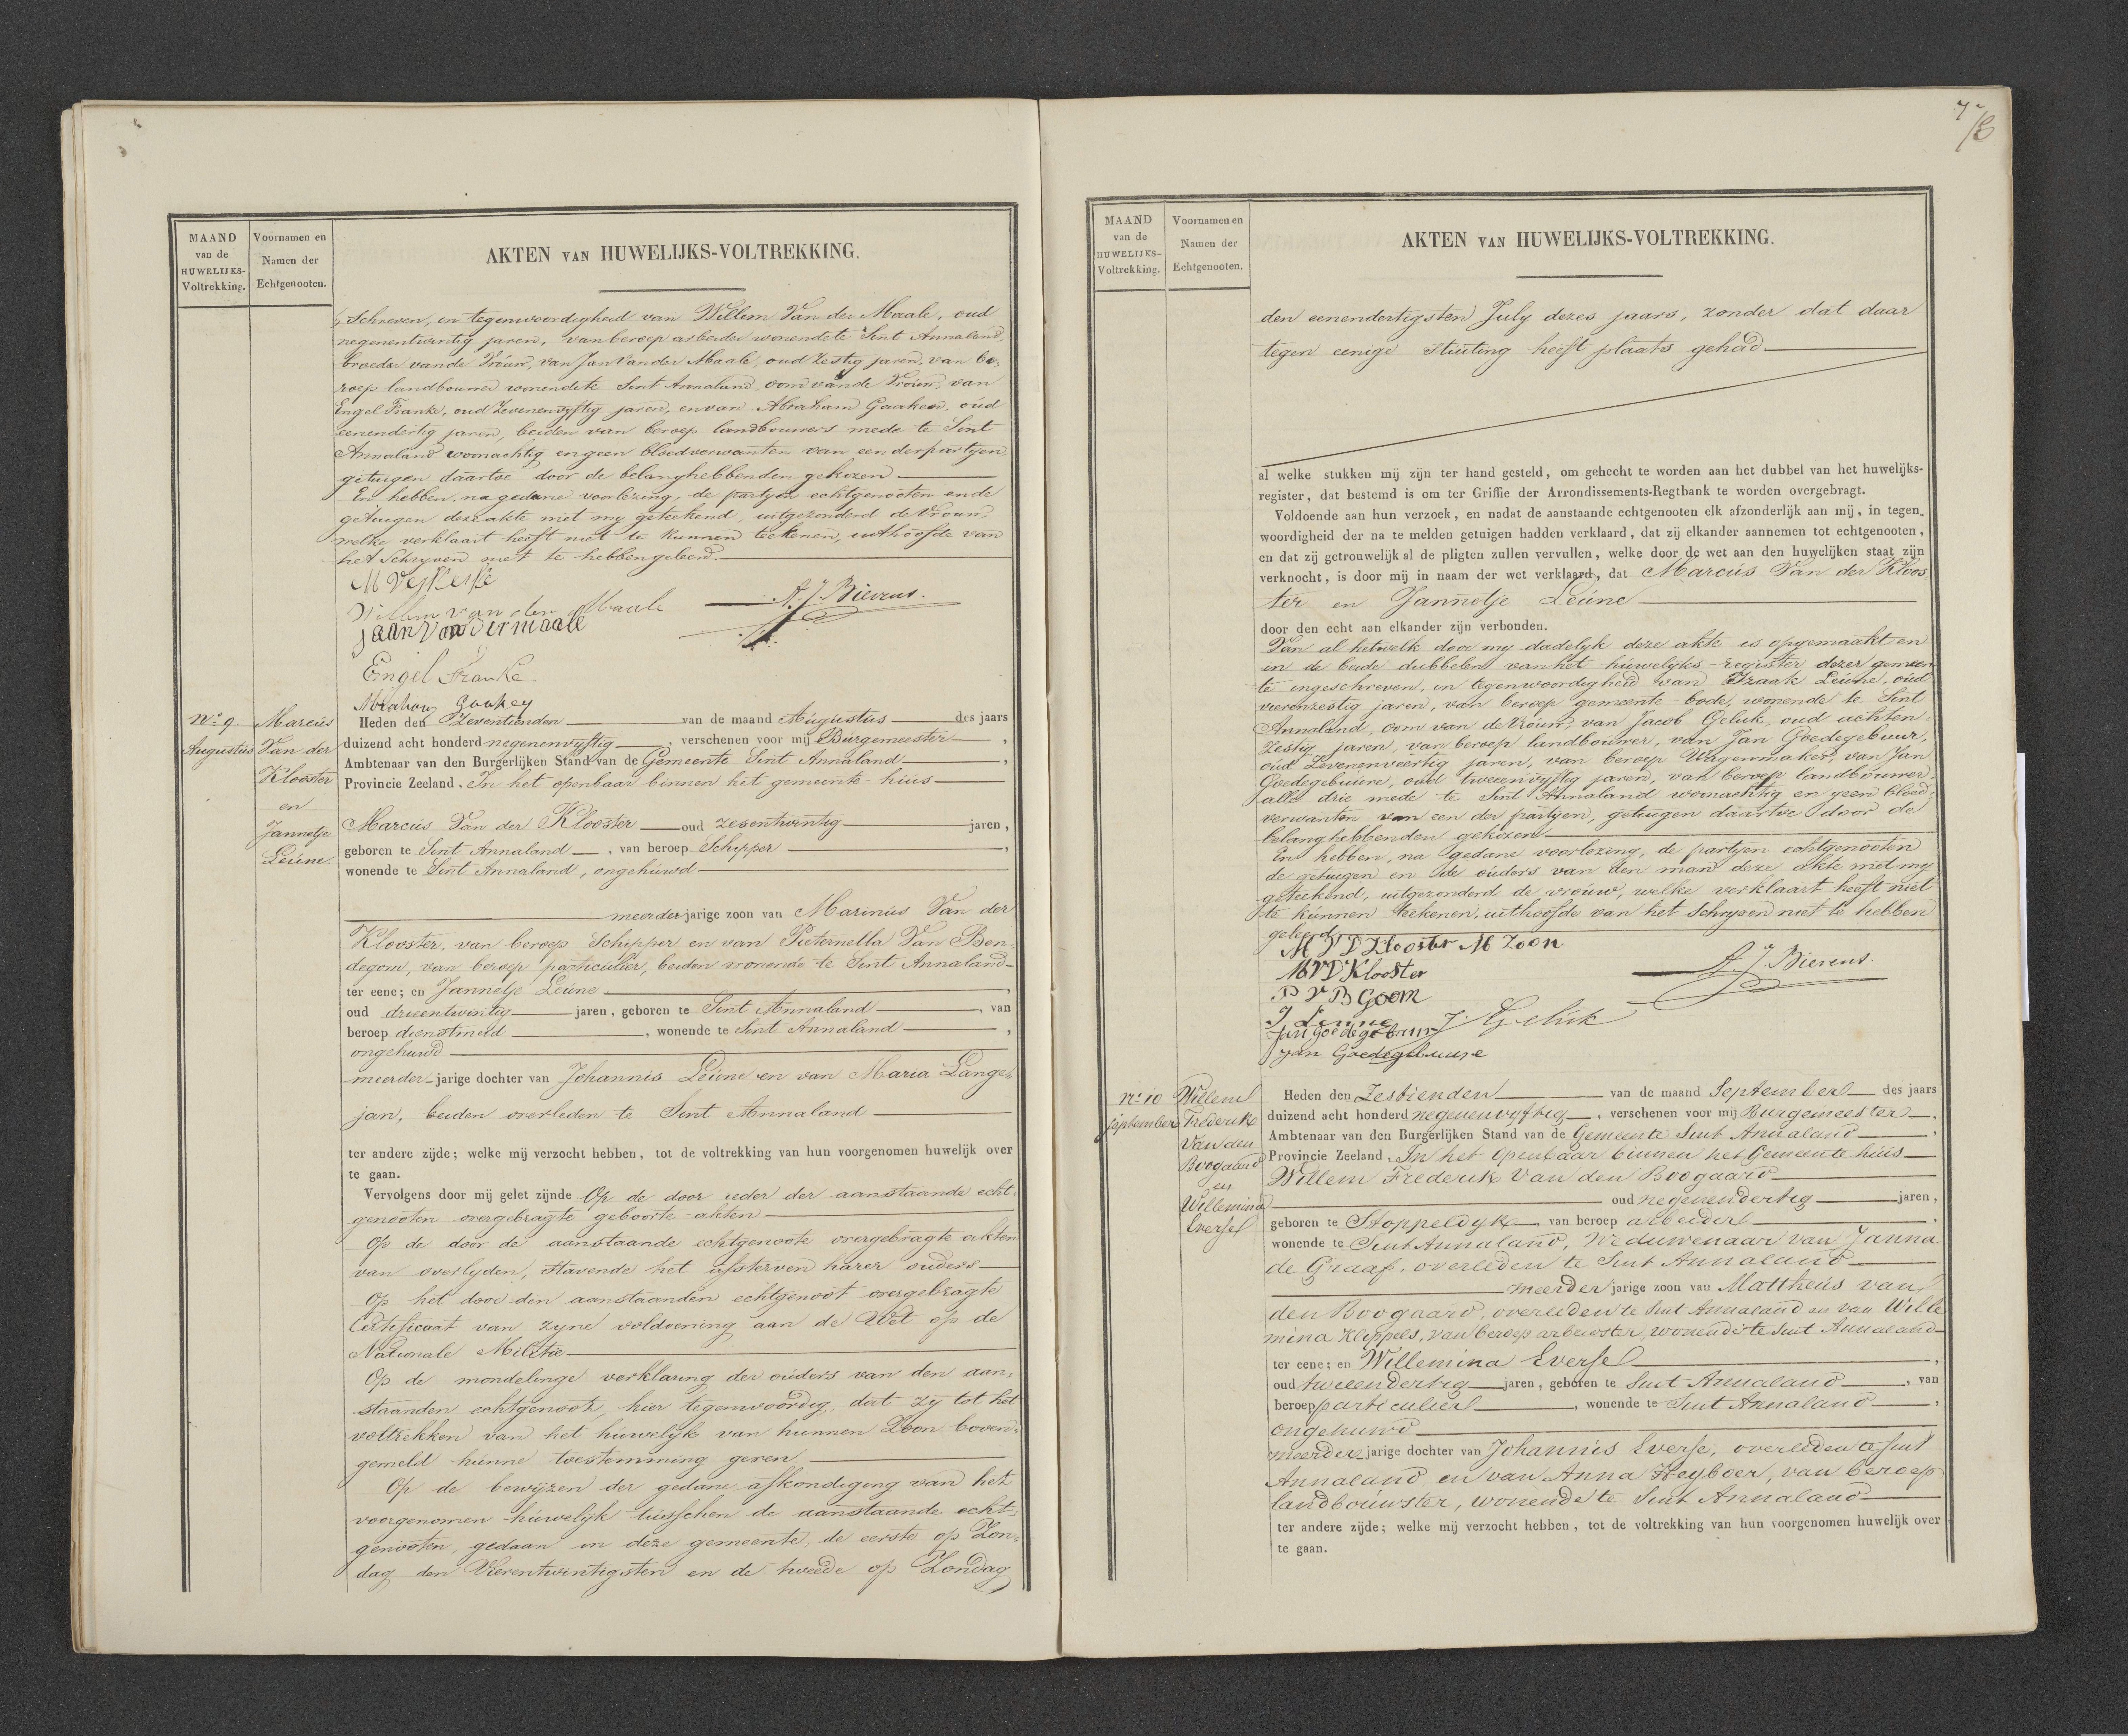 MAAND
van de
HUWELIJKS-
Voltrekking.
Voornamen en
Namen der
Echtgenooten.
AKTEN VAN HUWELIJKS-VOLTREKKING.
schreven, in tegenwoordigheid van Willem Van der Maale, oud
negenentwintig jaren, van beroep arbeider wonende te Sint Annaland,
broeder van de Vrouw, van Jan Van der Maale, oud Zestig jaren, van be-
roep landbouwer wonende te Sint Annaland oom van de Vrouw, van
Engel Franke, oud Zevenenvyftig jaren, en van Abraham Gaakeer, oud
eenendertig jaren, beiden van beroep landbouwers mede te Sint
Annaland woonachtig en geen bloedverwanten van een der partijen
getuigen daartoe door de belanghebbenden gekozen
En hebben, na gedane voorlezing, de partyen echtgenooten en de
getuigen deze akte met my geteekend, uitgezonderd de Vrouw,
welke verklaart heeft niet te kunnen teekenen, uithoofde van
het Schryven niet te hebben geleerd.
Willem van der Maale
A. J. Bierens.
jaan van der maale
Engel Franke
Abraham
No. 9.
Augustus
Marcus
Van der
Klooster
en
Jannetje
Leune.
Heden den Zeventienden van de maand Augustus des jaars
duizend acht honderd negenenvyftig, verschenen voor mij Burgemeester,
Ambtenaar van den Burgerlijken Stand van de Gemeente Sint Annaland,
Provincie Zeeland, In het openbaar binnen het gemeente-huis
Marcus Van der Klooster oud zesentwintig jaren,
geboren te Sint Annaland, van beroep Schipper,
wonende te Sint Annaland, ongehuwd
meerderjarige zoon van Marinus Van der
Klooster, van beroep Schipper en van Pieternella Van Ben-
degom, van beroep particulier, beiden wonende te Sint Annaland
ter eene; en Jannetje Leune,
oud drieentwintig jaren, geboren te Sint Annaland, van
beroep dienstmeid, wonende te Sint Annaland,
ongehuwd
meerder-jarige dochter van Johannis Leune en van Maria Lange-
jan, beiden overleden te Sint Annaland
ter andere zijde; welke mij verzocht hebben, tot de voltrekking van hun voorgenomen huwelijk over
te gaan.
Vervolgens door mij gelet zijnde Op de door ieder der aanstaande echt-
genooten overgebragte geboorte-akten
Op de door de aanstaande echtgenoote overgebragte akten
van overlyden, stavende het afsterven harer ouders
Op het door den aanstaanden echtgenoot overgebragte
Certificaat van zyne voldoening aan de Wet op de
Nationale Militie
Op de mondelinge verklaring der ouders van den aan-
staanden echtgenoot, hier tegenwoordig, dat zy tot het
voltrekken van het huwelyk van hunnen Zoon boven-
gemeld hunne toestemming geven.
Op de bewyzen der gedane afkondiging van het
voorgenomen huwelijk tusschen de aanstaande echt-
genooten, gedaan in deze gemeente, de eerste op Zon-
dag den Vierentwintigsten en de tweede op Zondag
MAAND
van de
HUWELIJKS-
Voltrekking.
Voornamen en
Namen der
Echtgenooten.
AKTEN VAN HUWELIJKS-VOLTREKKING.
den eenendertigsten July dezes jaars, zonder dat daar
tegen eenige stuiting heeft plaats gehad
al welke stukken mij zijn ter hand gesteld, om gehecht te worden aan het dubbel van het huwelijks-
register, dat bestemd is om ter Griffie der Arrondissements-Regtbank te worden overgebragt.
Voldoende aan hun verzoek, en nadat de aanstaande echtgenooten elk afzonderlijk aan mij, in tegen-
woordigheid der na te melden getuigen hadden verklaard, dat zij elkander aannemen tot echtgenooten,
en dat zij getrouwelijk al de pligten zullen vervullen, welke door de wet aan den huwelijken staat zijn
verknocht, is door mij in naam der wet verklaard, dat Marcus Van der Kloos-
ter en Jannetje Leune
door den echt aan elkander zijn verbonden.
Van al hetwelk door my dadelyk deze akte is opgemaakt en
in de beide dubbelen van het huwelijks-register dezer gemeen-
te ingeschreven, in tegenwoordigheid van Izaak Leune, oud
vierenzestig jaren, van beroep gemeente-bode, wonende te Sint
Annaland, oom van de Vrouw, van Jacob Geluk, oud achten-
zestig jaren, van beroep landbouwer, van Jan Goedegebuur,
oud Zevenenveertig jaren, van beroep Wagenmaker, van Jan
Goedegebuure, oud tweeenvyftig jaren, van beroep landbouwer,
alle drie mede te Sint Annaland woonachtig en geen bloed-
verwanten van een der partyen, getuigen daartoe door de
belanghebbenden gekozen
En hebben, na gedane voorlezing, de partyen echtgenooten
de getuigen en de ouders van den man deze akte met my
geteekend, uitgezonderd de vrouw, welke verklaart heeft niet
te kunnen teekenen, uithoofde van het Schryven niet te hebben
geleerd
M V D Klooster M Zoon
M V D Klooster
A. J. Bierens.
P V B Goom
J Leune
J Geluk
Jan Goedegebuur
Jan Goedegebuure
No. 10
september
Willem
Frederik
Van den
Boogaard
en
Willemina
Everse
Heden den Zestienden van de maand September des jaars
duizend acht honderd negenenvyftig, verschenen voor mij Burgemeester,
Ambtenaar van den Burgerlijken Stand van de Gemeente Sint Annaland,
Provincie Zeeland, In het Openbaar binnen het Gemeentehuis
Willem Frederik Van den Boogaard
oud negenendertig jaren,
geboren te Stoppeldyk, van beroep arbeider,
wonende te Sint Annaland, Weduwenaar van Janna
de Graaf, overleden te Sint Annaland
meerderjarige zoon van Mattheus van
den Boogaard, overleden te Sint Annaland en van Wille
mina Kleppels, van beroep arbeidster, wonende te Sint Annaland
ter eene; en Willemina Everse,
oud tweeendertig jaren, geboren te Sint Annaland, van
beroep particuliere, wonende te Sint Annaland,
ongehuwd
meerderjarige dochter van Johannis Everse, overleden te Sint
Annaland en van Anna Heyboer, van beroep
landbouwster, wonende te Sint Annaland
ter andere zijde; welke mij verzocht hebben, tot de voltrekking van hun voorgenomen huwelijk over
te gaan.